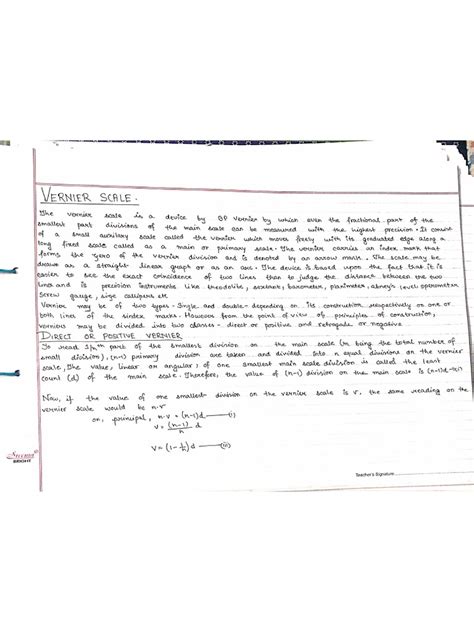 VERNIER SCALE.
The vernier scale is a device by BP Vernier by which even the fractional part of the
smallest part divisions of the main scale can be measured with the highest precision. It consist
of a small auxiliary scale called the vernier which move freely with its graduated edge along a
long fixed scale called as a main or primary scale. The vernier carries an index mark that
forms the zero of the vernier division and is denoted by an arrow mark. The scale may be
drawn as a straight linear graph or as an axe. The device is based upon the fact that it is
easier to see the exact coincidence of two lines than to judge the distance between the two
lines and is precision instruments like theodolite, sextant, barometer, planimeter, abney's level
screw gauge, size callipers etc
Vernier may be of two types - Single and double - depending on its construction respectively on one or
both lines of the index marks. However from the point of view of principles of construction,
verniers may be divided into two classes - direct or positive and retrograde or negative
DIRECT OR POSITIVE VERNIER
To read 1/nth part of the smallest division on the main scale (n being the total number of
small division), (n-1) primary division are taken and divided into n equal divisions on the vernier
scale, The value, linear or angular, of one smallest main scale division is called the least
count (d) of the main scale. Therefore, the value of (n-1) division on the main scale is (n-1)d
Now, if the value of one smallest division on the vernier scale is v, the same reading on the
vernier scale would be n.v
or, principal, n.v = (n-1)d
v = (n-1)/n d
v = (1 - 1/n) d
BRIGHT
Teacher's Signature